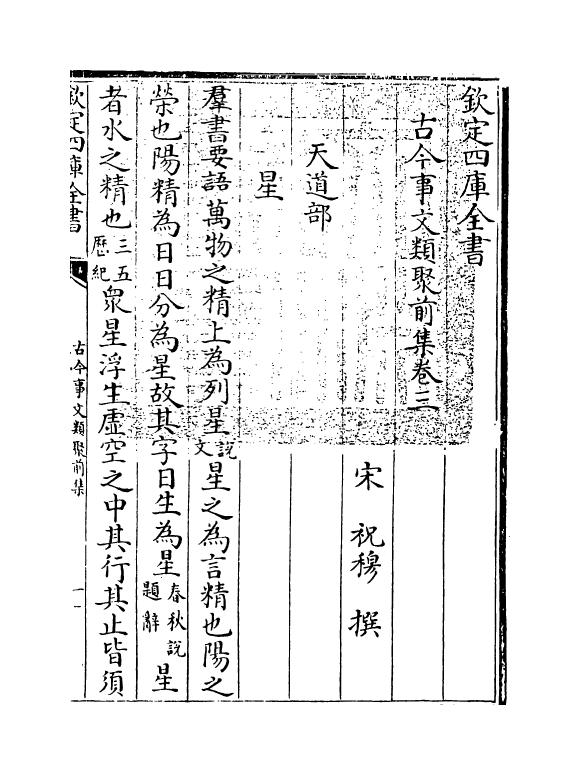 欽定四庫全書
古今事文類聚前集卷三
宋 祝穆 撰
天道部
星
羣書要語萬物之精上為列星說文星之為言精也陽之
榮也陽精為日日分為星故其字日生為星春秋說題辭星
者水之精也三五歷紀衆星浮生虛空之中其行其止皆須
欽定四庫全書
古今事文類聚前集
一